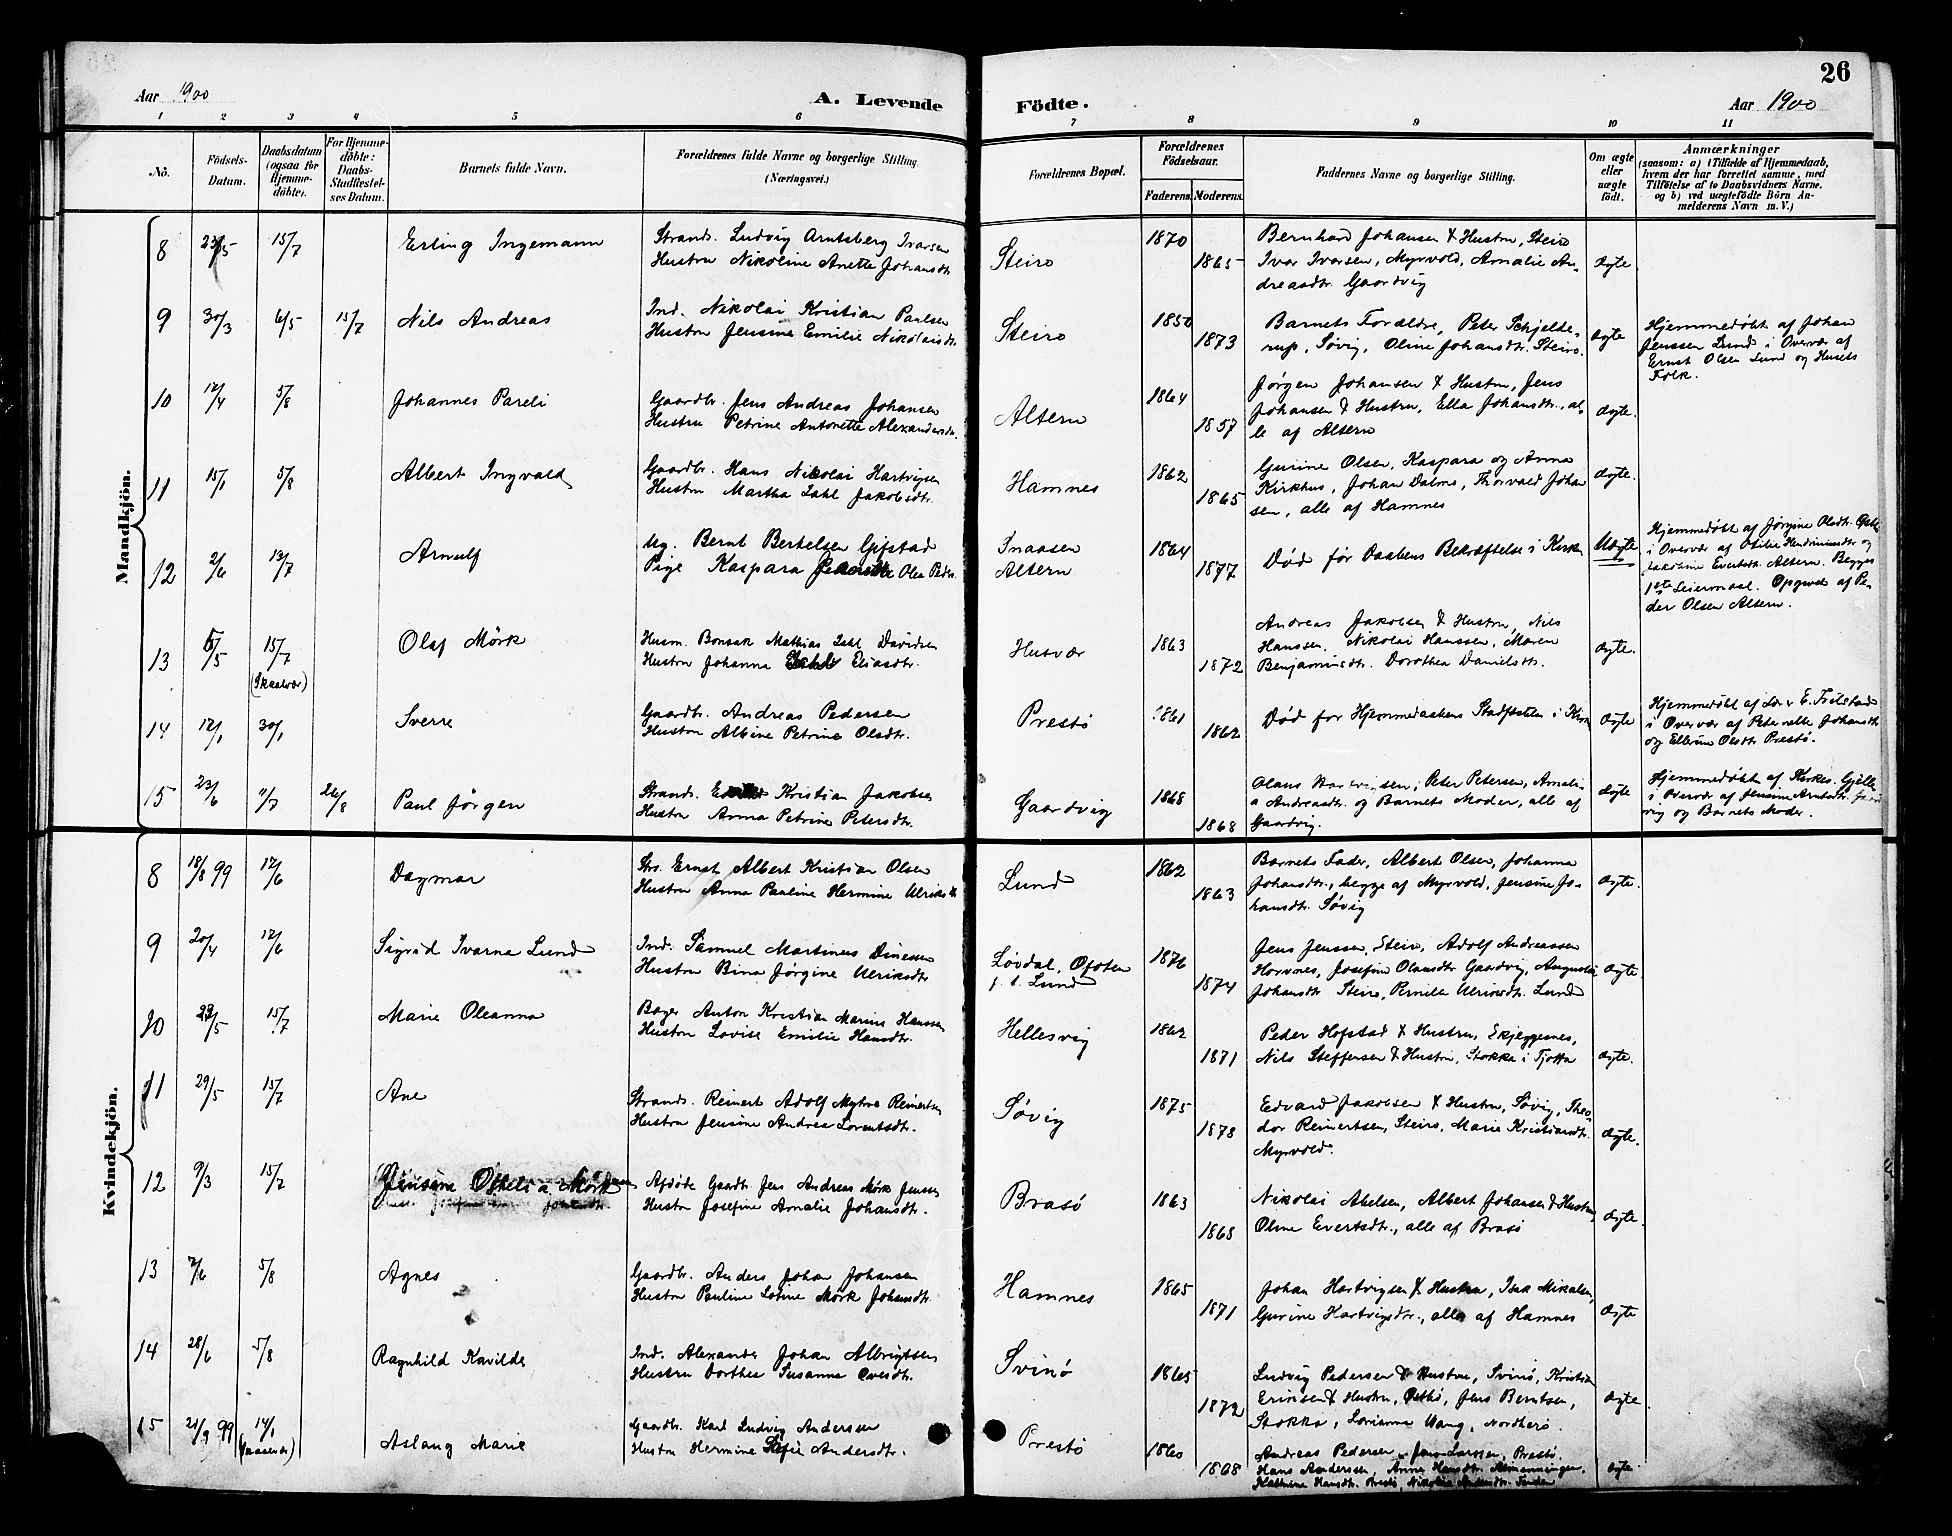 26
Aar 1900
A. Levende Födte.
Aar 1900
1 2 3 4 5 6 7 8 9 10 11
No.
Födsels-
Datum.
Daabsdatum
(ogsaa for
Hjemme-
döbte).
For Hjemme-
döbte:
Daabs-
Stadfæstel-
ses Datum.
Barnets fulde Navn.
Forældrenes fulde Navne og borgerlige Stilling.
(Næringsvei.)
Forældrenes Bopæl.
Forældrenes
Födselsaar.
Faderens. Moderens.
Faddernes Navne og borgerlige Stilling.
Om ægte
eller
uægte
födt.
Anmærkninger
(saasom: a) i Tilfælde af Hjemmedaab,
hvem der har forrettet samme, med
Tilföielse af to Daabsvidners Navne,
og b) ved uægtefödte Börn An-
melderens Navn m. V.)
Mandkjön.
8 23/5 15/7 Erling Ingemann
Strands. Ludvig Arntsberg Ivarsen
Hustru Nikoline Anette Johansdtr.
Steiro 1870 1865
Bernhard Johansen & Hustru, Steiro
Ivar Ivarsen, Myrvold, Amalie An-
dreasdtr. Gaardvig
ægte
9 30/3 6/5 15/7 Nils Andreas
Ind. Nikolai Kristian Paulsen
Hustru Jensine Emilie Nikolaisdtr.
Steiro 1850 1873
Barnets Forældre, Peter Schjelde-
rup, Søvig, Oline Johansdtr. Steiro.
ægte
Hjemmedøbt af Johan
Jenssen Lund i Overvær af
Ernst Olsen Lund og Husets
Folk.
10 12/4 5/8 Johannes Pareli
Gaardbr. Jens Andreas Johansen
Hustru Petrine Antonette Alexandersdtr.
Altern 1864 1857
Jørgen Johansen & Hustru, Jens
Johansen & Hustru, Ella Johansdtr., al-
le af Altern
ægte.
11 15/1 5/8 Albert Ingvald
Gaardbr. Hans Nikolai Hartvigsen
Hustru Martha Dahl Jakobsdtr.
Hamnes 1862 1865
Gurine Olsen, Kaspara og Anna
Kirkhus, Johan Dalmo, Thorvald Johan
sen, alle af Hamnes
ægte.
12 2/6 13/7 Arnulf
Ug. Bernt Bertelsen Gifstad
Pige Kaspara Olea Peders
Altern 1864 1877
Død før Daabens Bekræftelse i Kirken
Uægte
Hjemmedøbt af Jørgine Olsdtr.
i Overvær af Otilie Hendriksdtr og
Jakobine Evertsdtr. Altern. Begges
1ste Leiermaal. Opgivet af Pe-
der Olsen Altern.
13 6/5 15/7 (Skaalvær) Olaf Mörk
Husm. Bonsak Mathias Dahl Davidsen
Hustru Johanna Eliasdtr.
Husvær 1863 1872
Andreas Jakobsen & Hustru, Nils
Hanssen, Nikolai Hanssen, Maren
Benjaminsdtr. Dorothea Danielsdtr.
ægte.
14 12/1 30/1 Sverre
Gaardbr. Andreas Pedersen
Hustru Albine Petrine Olsdtr.
Prestö 1861 1862
Død før Hjemmedaabens Stadfæstelse i Kirken
ægte
Hjemmedøbt af
i Overvær af Peternelle Johansdtr
og Ellerine Olsdtr. Prestö.
15 23/6 11/7 26/8 Paul Jörgen
Strands. Kristian Jakobsen
Hustru Anna Petrine Petersdtr.
Gaardvig 1868 1868
Olaus Hartvigsen, Peter Petersen, Amali-
a Andreasdtr. og Barnets Moder, alle af
Gaardvig.
ægte
Hjemmedøbt af Kirkes.
i Overvær af Jensine Arntsdtr. Gaard
vig og Barnets Moder.
Kvindekjön.
8 18/8 99 12/6 Dagmar
Strs. Ernst Albert Kristian Olsen
Hustru Anna Pauline Hermine Ulriksdtr
Lund 1862 1863
Barnets Fader, Albert Olsen, Johanna
Johansdtr., begge af Myrvold, Jensine Jo-
hansdtr. Søvig
ægte.
9 20/4 12/6 Sigrid Ivarna Lund
Ind. Samuel Martinus Dinessen
Hustru Bina Jörgine Ulriksdtr
Løvdal, Ofoten
f. t. Lund 1876 1874
Jens Jenssen, Steiro, Adolf Andreassen
Horvnes, Josefine Olausdtr Gaardvig, Augusta
Johansdtr Steiro, Pernille Ulriksdtr. Lund
ægte.
10 23/5 15/7 Marie Oleanna
Bager Anton Kristian Marius Hanssen
Hustru Lovise Emilie Hansdtr.
Hellesvig 1862 1871
Peder Hofstad & Hustru, Skjeggenes,
Nils Steffensen & Hustru, Stokke i Tjøtta
ægte.
11 29/5 15/7 Ane
Strands. Reinert Adolf Myhre Reinertsen
Hustru Jensine Andrea Lorentsdtr.
Søvig 1875 1878
Edvard Jakobsen & Hustru, Søvig, Theo-
dor Reinertsen, Steiro, Marie Kristiansdtr.
Myrvold.
ægte.
12 9/3 15/7 Jensine Othelia Mörk
Afdöde Gaardbr. Jens Andreas Mörk Jenssen
Hustru Josefine Amalie Johansdtr.
Brasö 1863 1868
Nikolai Abelsen, Albert Johansen & Hustru,
Oline Evertsdtr., alle af Brasö
ægte.
13 7/6 5/8 Agnes
Gaardbr. Anders Johan Johansen
Hustru Pauline Lovine Mörk Johansdtr.
Hamnes 1865 1871
Johan Hartvigsen & Hustru, Ina Mikalsen,
Gurine Hartvigsdtr., alle af Hamnes
ægte
14 28/6 5/8 Ragnhild Kavilde
Ind. Alexander Johan Albrigtsen
Hustru Dorthea Susanna Ovesdtr.
Svinö 1865 1872
Ludvig Pedersen & Hustru, Svinö, Kristian
Eriksen & Hustru, Jens Berntsen,
Stokka, Lorianna Vang, Nordherö
ægte.
15 21/9 99 14/1 Aslaug Marie
Gaardbr. Karl Ludvig Anderssen
Hustru Hermine Sofie Andersdtr.
Prestö 1860 1868
Andreas Pedersen, Larssen, Prestö.
Hans Anderssen, Anne Hansdtr.
Kathrine Hansdtr. Prestö,
ægte